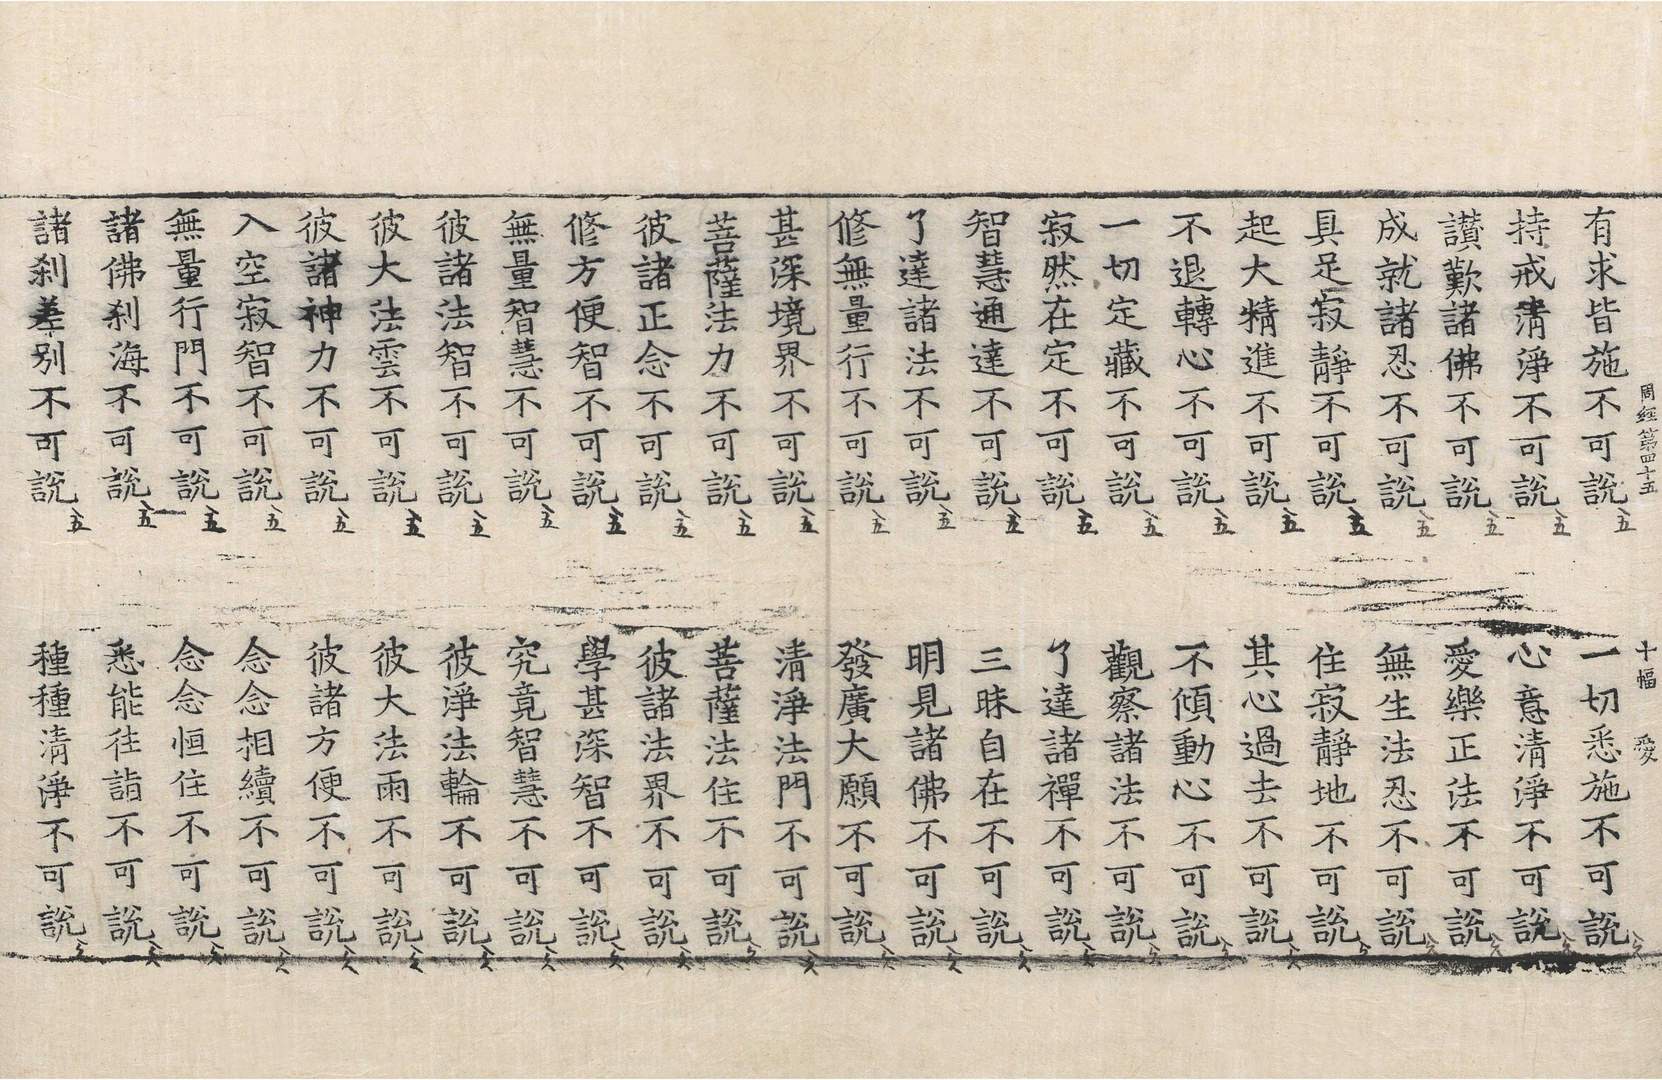 周經第四十五 十幅 愛
有求皆施不可說 一切悉施不可說
持戒清淨不可說 心意清淨不可說
讚歎諸佛不可說 愛樂正法不可說
成就諸忍不可說 無生法忍不可說
具足寂靜不可說 住寂靜地不可說
起大精進不可說 其心過去不可說
不退轉心不可說 不傾動心不可說
一切定藏不可說 觀察諸法不可說
寂然在定不可說 了達諸禪不可說
智慧通達不可說 三昧自在不可說
了達諸法不可說 明見諸佛不可說
修無量行不可說 發廣大願不可說
甚深境界不可說 清淨法門不可說
菩薩法力不可說 菩薩法住不可說
彼諸正念不可說 彼諸法界不可說
修方便智不可說 學甚深智不可說
無量智慧不可說 究竟智慧不可說
彼諸法智不可說 彼淨法輪不可說
彼大法雲不可說 彼大法雨不可說
彼諸神力不可說 彼諸方便不可說
入空寂智不可說 念念相續不可說
無量行門不可說 念念恒住不可說
諸佛刹海不可說 悉能往詣不可說
諸刹差別不可說 種種清淨不可說